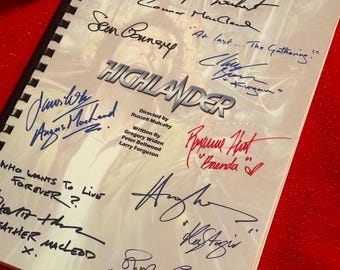 Connor MacLeod
Sean Connery
"At last... The Gathering!"
Clancy
Brown
"Kurgan"
HIGHLANDER
Directed by
Russell Mulcahy
Written By
Gregory Widen
Peter Bellwood
Larry Ferguson
James
Angus MacLeod
Roxanne Hart
"Brenda"
WHO WANTS TO LIVE
FOREVER?
HEATHER MacLEOD
X.
Hugh
"Kastagir"